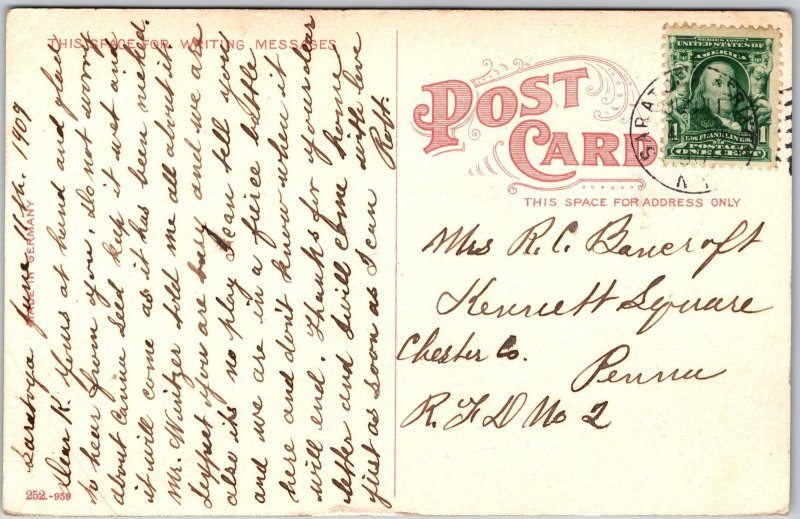 THIS SPACE FOR WRITING MESSAGES
Saratoga June 11th. 1909
Dear K. Yours at hand and glad
to hear from you. Do not worry
about Canna seed keep it wet and
it will come as it has been nicked.
Mr. told me all about it
you are busy as we are
also its no play I can tell you
and we are in a fierce battle
here and don't know when it
will end. Thanks for your dear
letter and I will come home
just as soon as I can with love
Robt.
MADE IN GERMANY
252.-959
POST
CARD
THIS SPACE FOR ADDRESS ONLY
SERIES 1902
UNITED STATES OF
AMERICA
1 FRANKLIN 1
POSTAGE
ONE CENT
SARATOGA SPRINGS
N.Y.
Mrs R. C. Bancroft
Kennett Square
Chester Co.
Penna
R. F D No 2